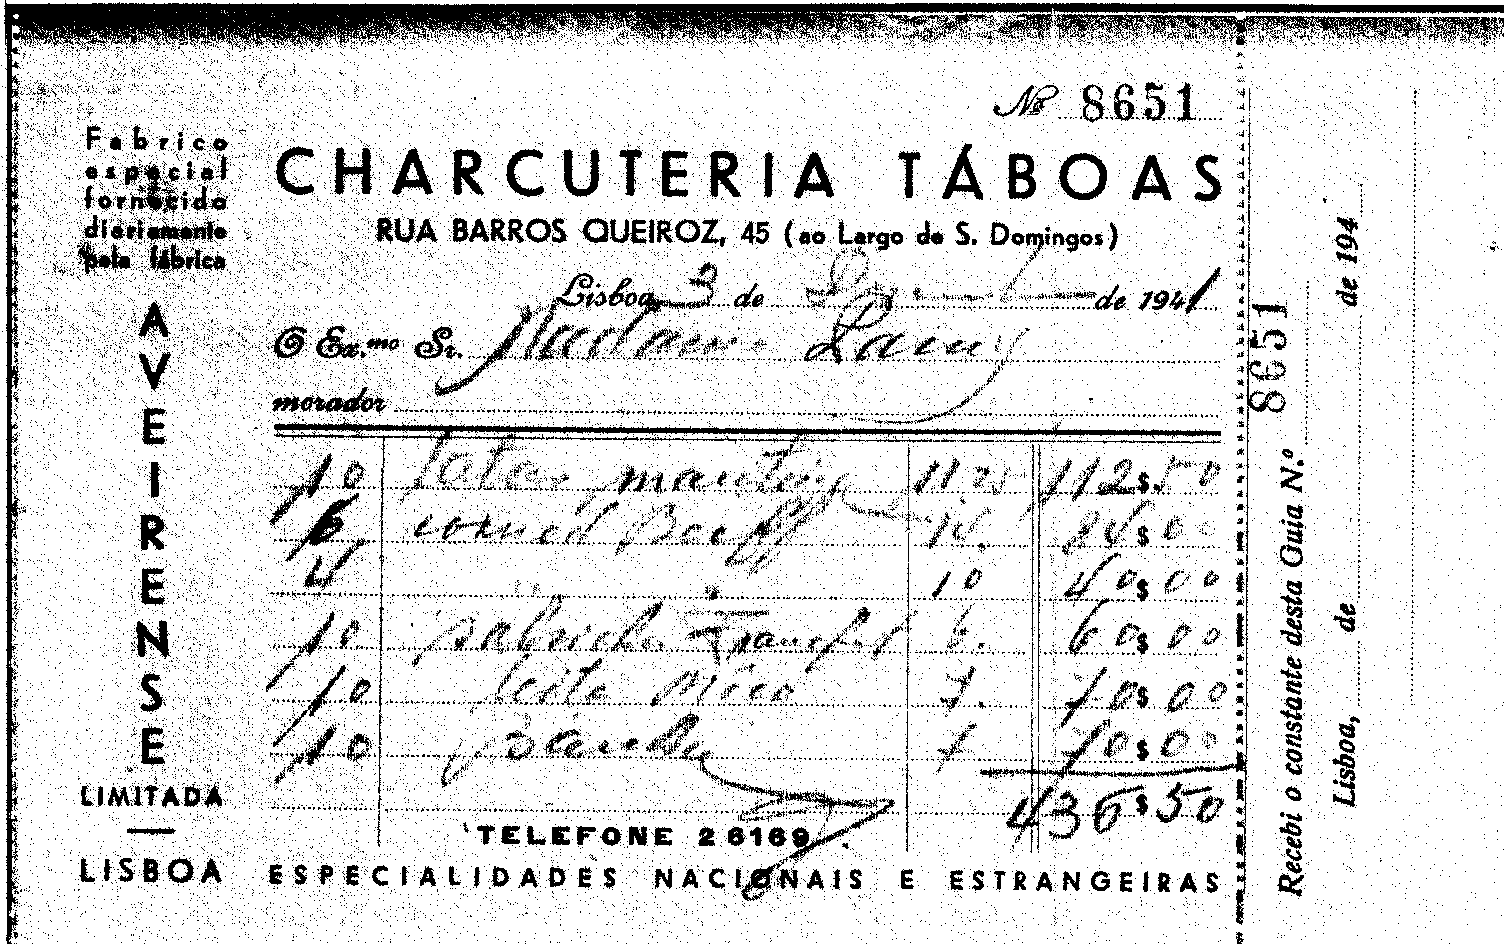 Nº 8651
Fabrico
especial
fornecido
diariamente
pela fábrica
AVEIRENSE
LIMITADA
LISBOA
CHARCUTERIA TÁBOAS
RUA BARROS QUEIROZ, 45 (ao Largo de S. Domingos)
Lisboa, 3 de de 1941
O Ex.mo Sr. Madame
morador
10 Latas 11.25 112$50
6 Corned Beef 14. 84$00
4 " 10 40$00
10 6. 60$00
10 7. 70$00
10 7 70$00
436$50
TELEFONE 26169
ESPECIALIDADES NACIONAIS E ESTRANGEIRAS
Recebi o constante desta Guia N.º 8651
Lisboa, de de 194